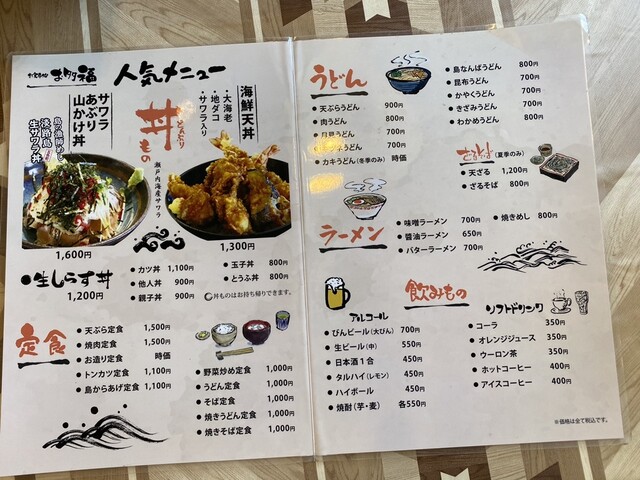 お多福
人気メニュー
サワラ
あぶり
山かけ丼
島の漁師めし
淡路島
生サワラ丼
1,600円
丼もの
どんぶり
瀬戸内海産サワラ
海鮮天丼
・大海老
・地ダコ
・サワラ入り
1,300円
●生しらす丼
1,200円
●カツ丼 1,100円
●他人丼 900円
●親子丼 900円
●玉子丼 800円
●とうふ丼 800円
丼ものはお持ち帰りできます。
定食
●天ぷら定食 1,500円
●焼肉定食 1,500円
●お造り定食 時価
●トンカツ定食 1,100円
●島からあげ定食 1,100円
●野菜炒め定食 1,000円
●うどん定食 1,000円
●そば定食 1,000円
●焼きうどん定食 1,000円
●焼きそば定食 1,000円
うどん
●天ぷらうどん 900円
●肉うどん 800円
●月見うどん
●カキうどん(冬季のみ) 時価
●島なんばうどん 800円
●昆布うどん 700円
●かやくうどん 700円
●きざみうどん 700円
●わかめうどん 800円
(夏季のみ)
●天ざる 1,200円
●ざるそば 800円
ラーメン
●味噌ラーメン 700円
●醤油ラーメン 650円
●バターラーメン 700円
●焼きめし 800円
飲みもの
アルコール
●びんビール(大びん) 700円
●生ビール(中) 550円
●日本酒1合 450円
●タルハイ(レモン) 450円
●ハイボール 450円
●焼酎(芋・麦) 各550円
ソフトドリンク
●コーラ 350円
●オレンジジュース 350円
●ウーロン茶 350円
●ホットコーヒー 400円
●アイスコーヒー 400円
※価格は全て税込です。